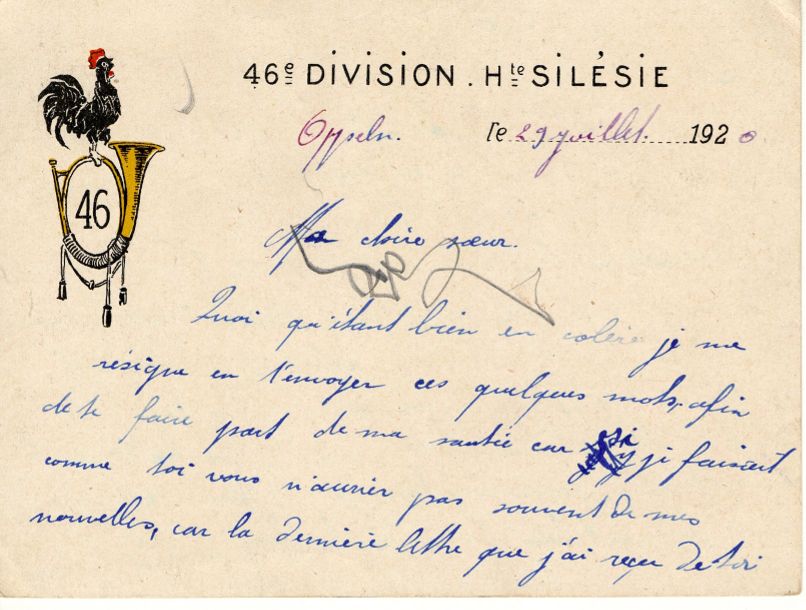 46e DIVISION. Hte SILÉSIE
Oppeln. le 29 juillet 1920
46
Ma chère sœur.
Quoi qu'étant bien en colère je me
résigne en t'envoyer ces quelques mots, afin
de te faire part de ma santé car si je faisait
comme toi vous n'auriez pas souvent de mes
nouvelles, car la dernière lettre que j'ai reçu de toi